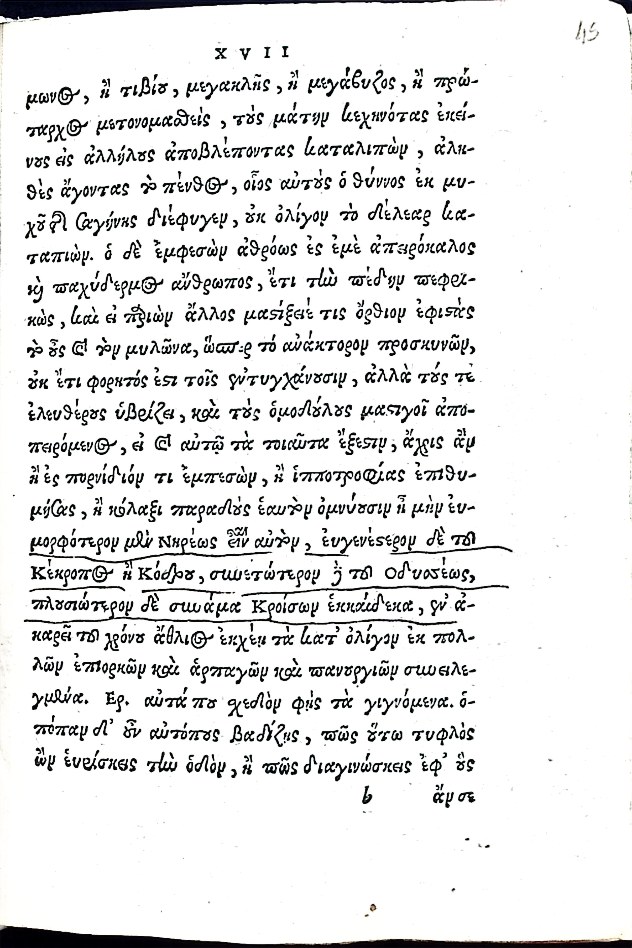 45
XVII
μωνος, ἢ τιβίου, μεγακλῆς, ἢ μεγάβυζος, ἢ πρώ-
ταρχος μετονομασθεὶς, τοὺς μάτην κεχηνότας ἐκεί-
νους εἰς ἀλλήλους ἀποβλέποντας καταλιπὼν, ἀλη-
θὲς ἄγοντας τὸ πένθος, οἷος αὐτοὺς ὁ θύννος ἐκ μυ-
χοῦ τῆς σαγήνης διέφυγεν, οὐκ ὀλίγον τὸ δέλεαρ κα-
ταπιών. ὁ δὲ ἐμπεσὼν ἀθρόως ἐς ἐμὲ ἀπειρόκαλος
καὶ παχύδερμος ἄνθρωπος, ἔτι τὴν πέδην πεφρι-
κὼς, καὶ εἰ παριὼν ἄλλος μαστίξειέ τις ὄρθιον ἐφιστὰς
τὸ οὖς καὶ τὸν μυλῶνα, ὥσπερ τὸ ἀνάκτορον προσκυνῶν,
οὐκ ἔτι φορητός ἐστι τοῖς ἐντυγχάνουσιν, ἀλλὰ τούς τε
ἐλευθέρους ὑβρίζει, καὶ τοὺς ὁμοδούλους μαστιγοῖ ἀπο-
πειρόμενος, εἰ καὶ αὐτῷ τὰ τοιαῦτα ἔξεστιν, ἄχρις ἂν
ἢ ἐς πορνίδιόν τι ἐμπεσὼν, ἢ ἱπποτροφίας ἐπιθυ-
μήσας, ἢ κόλαξι παραδοὺς ἑαυτὸν ὀμνύουσιν ἦ μὴν εὐ-
μορφότερον μὲν Νηρέως εἶναι αὐτὸν, εὐγενέστερον δὲ τοῦ
Κέκροπος ἢ Κόδρου, συνετώτερον δὲ τοῦ Οδυσσέως,
πλουσιώτερον δὲ συνάμα Κροίσων ἑκκαίδεκα, ἐν ἀ-
καρεῖ τοῦ χρόνου ἄθλιος ἐκχέῃ τὰ κατ' ὀλίγον ἐκ πολ-
λῶν ἐπιορκῶν καὶ ἁρπαγῶν καὶ πανουργιῶν συνειλε-
γμένα. Ερ. αὐτά που σχεδὸν φῂς τὰ γιγνόμενα. ὁ-
πόταν δ' οὖν αὐτόπους βαδίζῃς, πῶς οὕτω τυφλὸς
ὢν εὑρίσκεις τὴν ὁδὸν, ἢ πῶς διαγινώσκεις ἐφ' οὓς
b ἄν σε